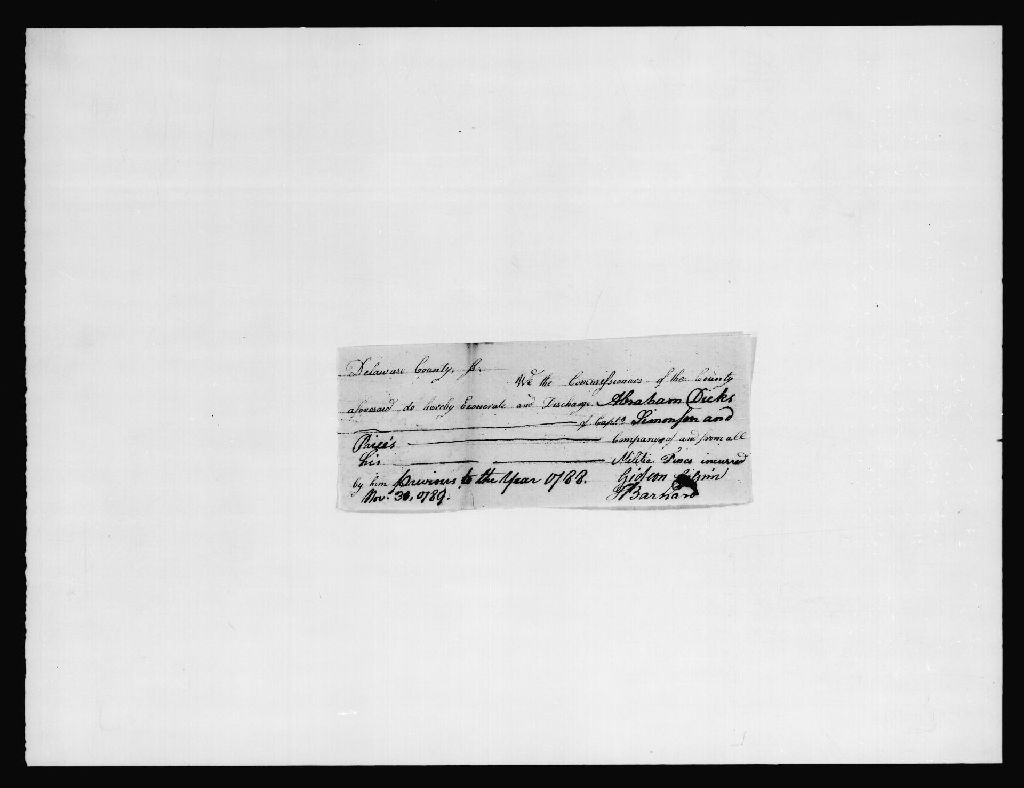 Delaware County, ss.
We the Commissioners of the County
aforesaid do hereby Exonerate and Discharge Abraham Dicks
of Capt.s Simonson and
Price's Companies of and from all
his Militia Fines incurred
by him previous to the Year 1788.
Nov.r 30, 1789. Gideon
J Barnard